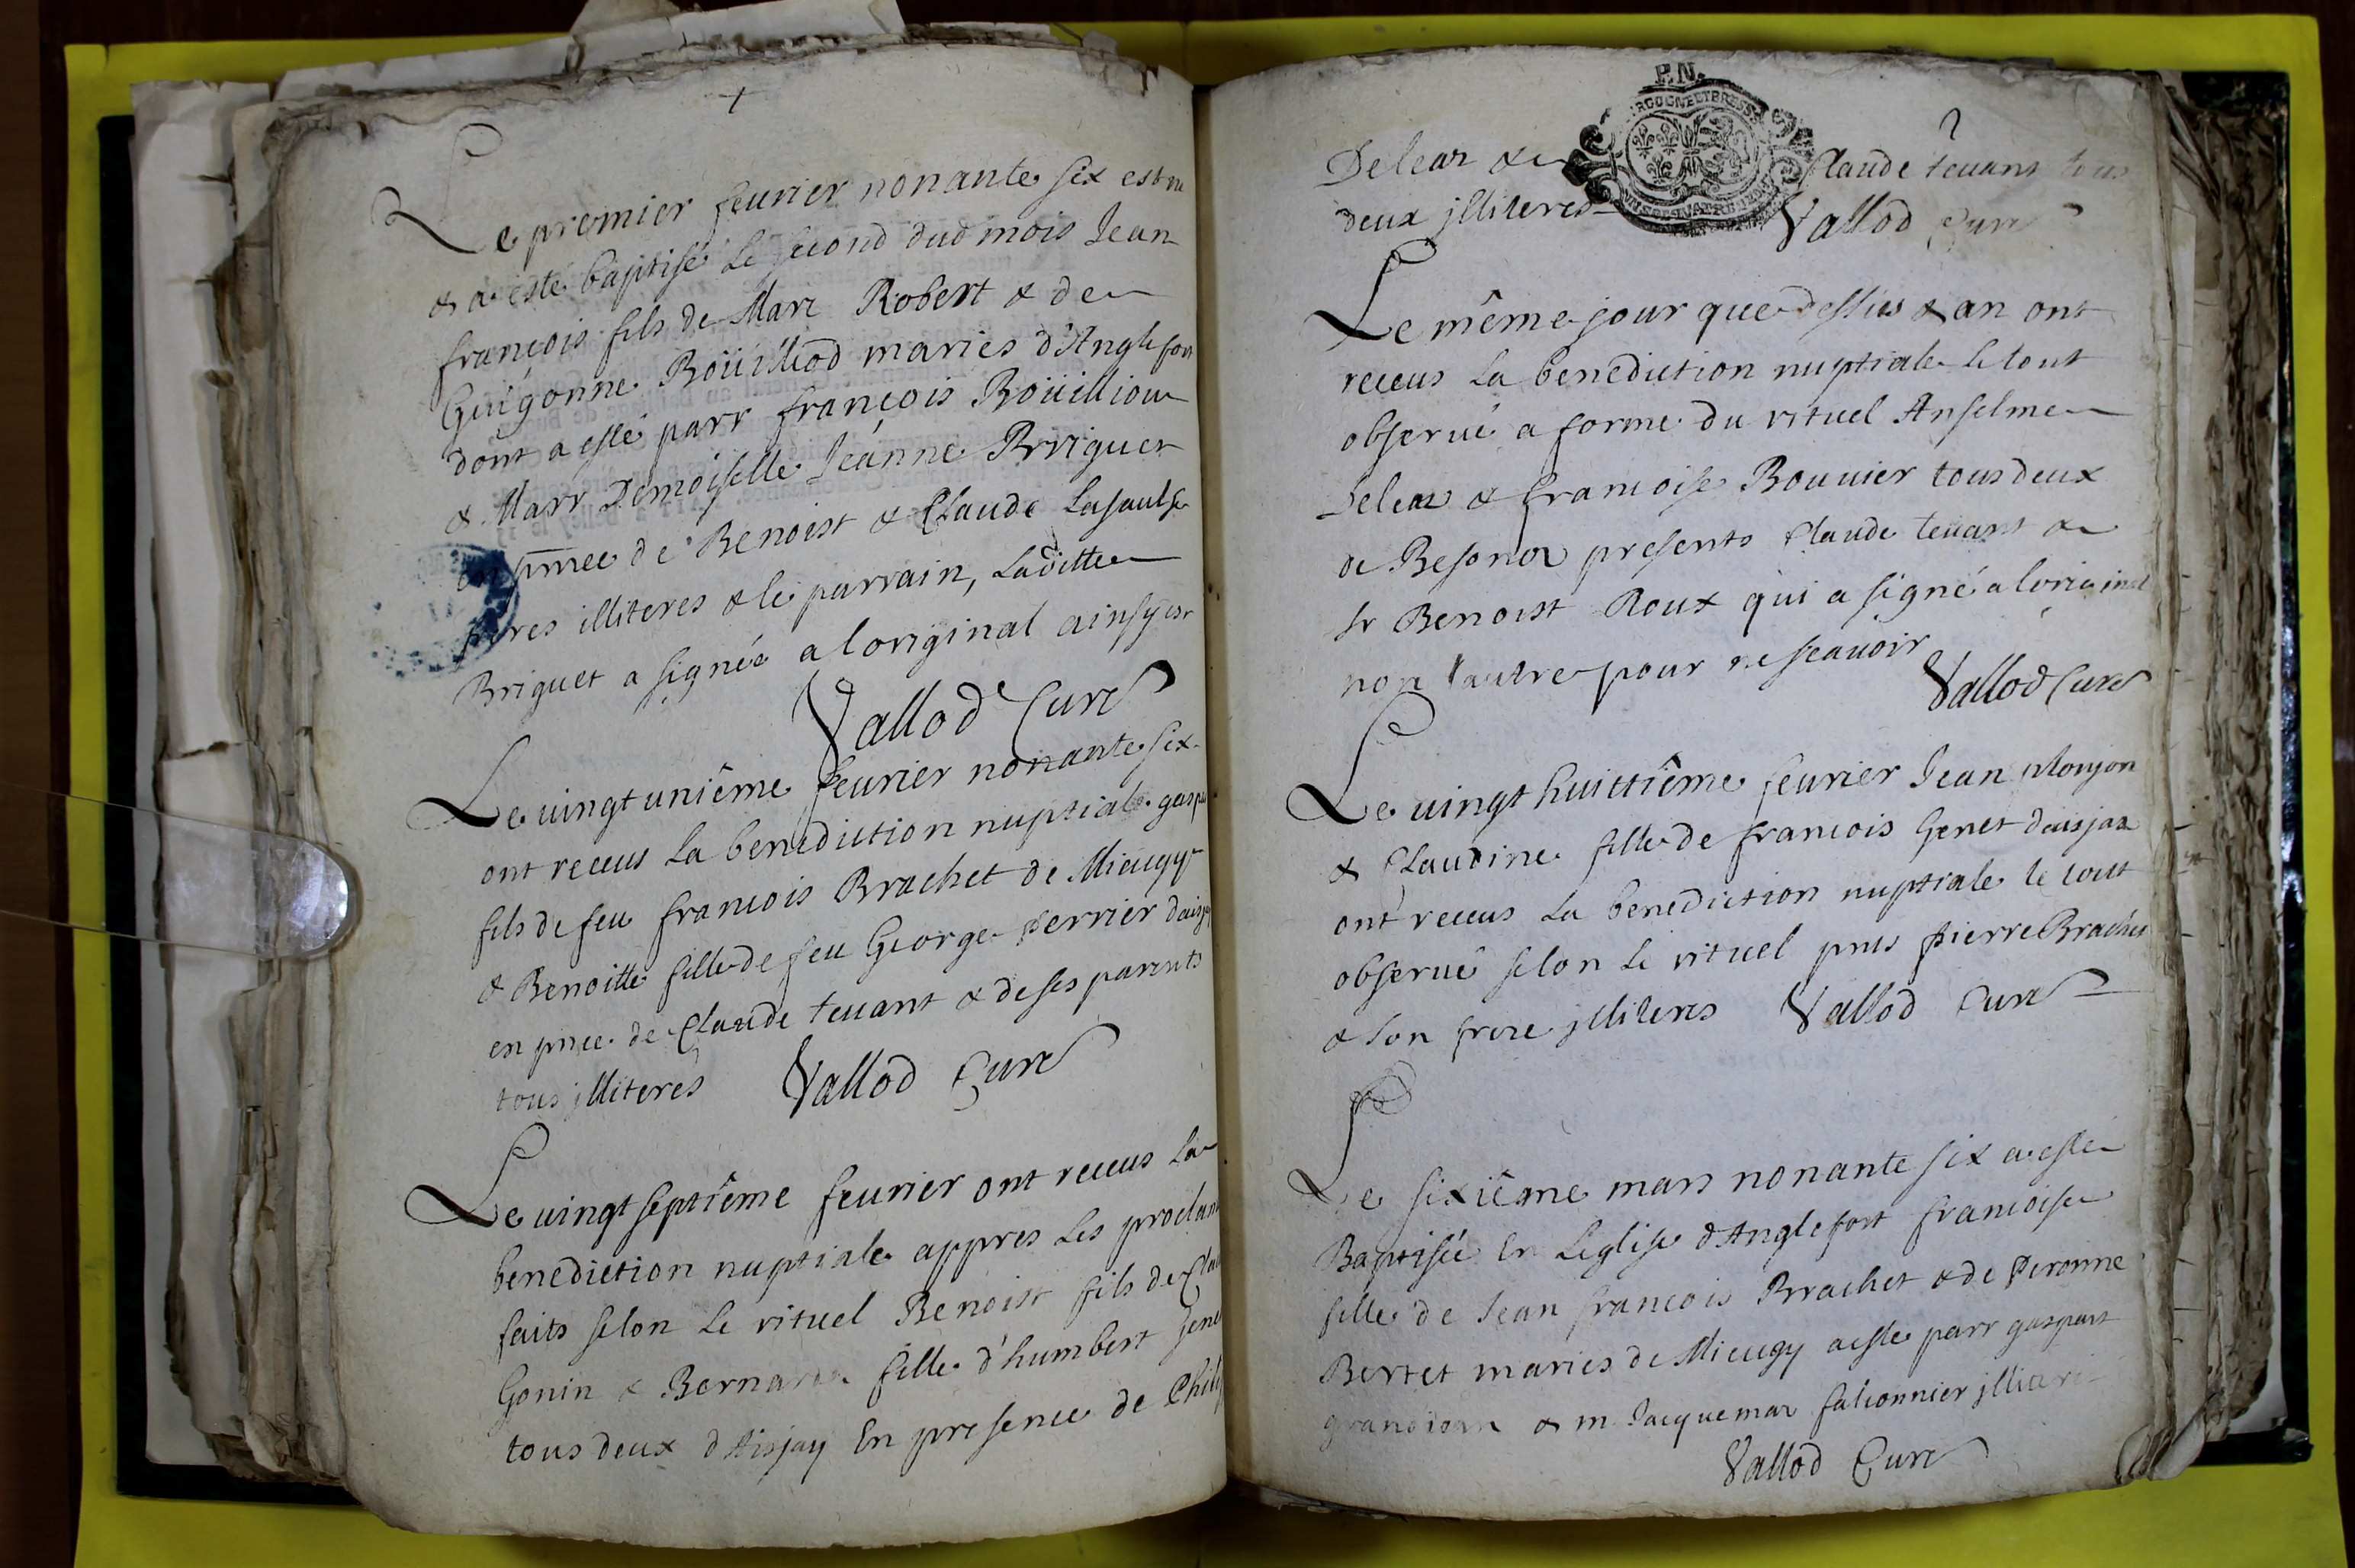 Le premier feurier nonante six est ne
& a esté baptisé le second dud mois Jean
françois fils de Marc Robert & de
Guigonne Boüilliod mariés d'Anglefort
dont a esté parr françois Boüilliou
& Marr Demoiselle Jeanne Briguet
en pñce de Benoist & Claude Lasaulse
peres illiteres & le parrain, Laditte
Briguet a signée a loriginal ainsy est
Vallod Curé
Le uingt unième feurier nonante six
ont receus la benediction nuptiale gaspar
fils de feu francois Brachet de Mieugy
& Benoitte fille de feu George perrier
en pnce de Claude teuant & de ses parents
tous jlliteres Vallod Curé
Le uingt septième feurier ont receus la
benediction nuptiale appres les proclam
faits selon le rituel Benoist fils de
Gonin & fille d'humbert
tous deux d'Aisjay En presence de
P.N.
Delear & Claude teuant tous
deux jlliteres Vallod Curé
Le même jour que dessus & an ont
receus la benediction nuptiale le tout
obserué a forme du rituel Anselme
Delear & francoise Bouuier tous deux
de presents Claude teuant &
Sr Benoist Roux qui a signé a loriginal
non l'autre pour ne scauoir
Vallod Curé
Le uingt huittième feurier Jean plonjon
& Claudine fille de francois Genet
ont receus la benediction nuptiale le tout
obserué selon le rituel pnts pierre Brachet
& son frere jlliteres Vallod Curé
Le sixième mars nonante six a esté
Baptisée En Leglise d'Anglefort francoise
fille de Jean francois Brachet & de peronne
Bertet mariés de Mieugy a esté parr gaspart
& m. Jacquemaz falconnier
Vallod Curé